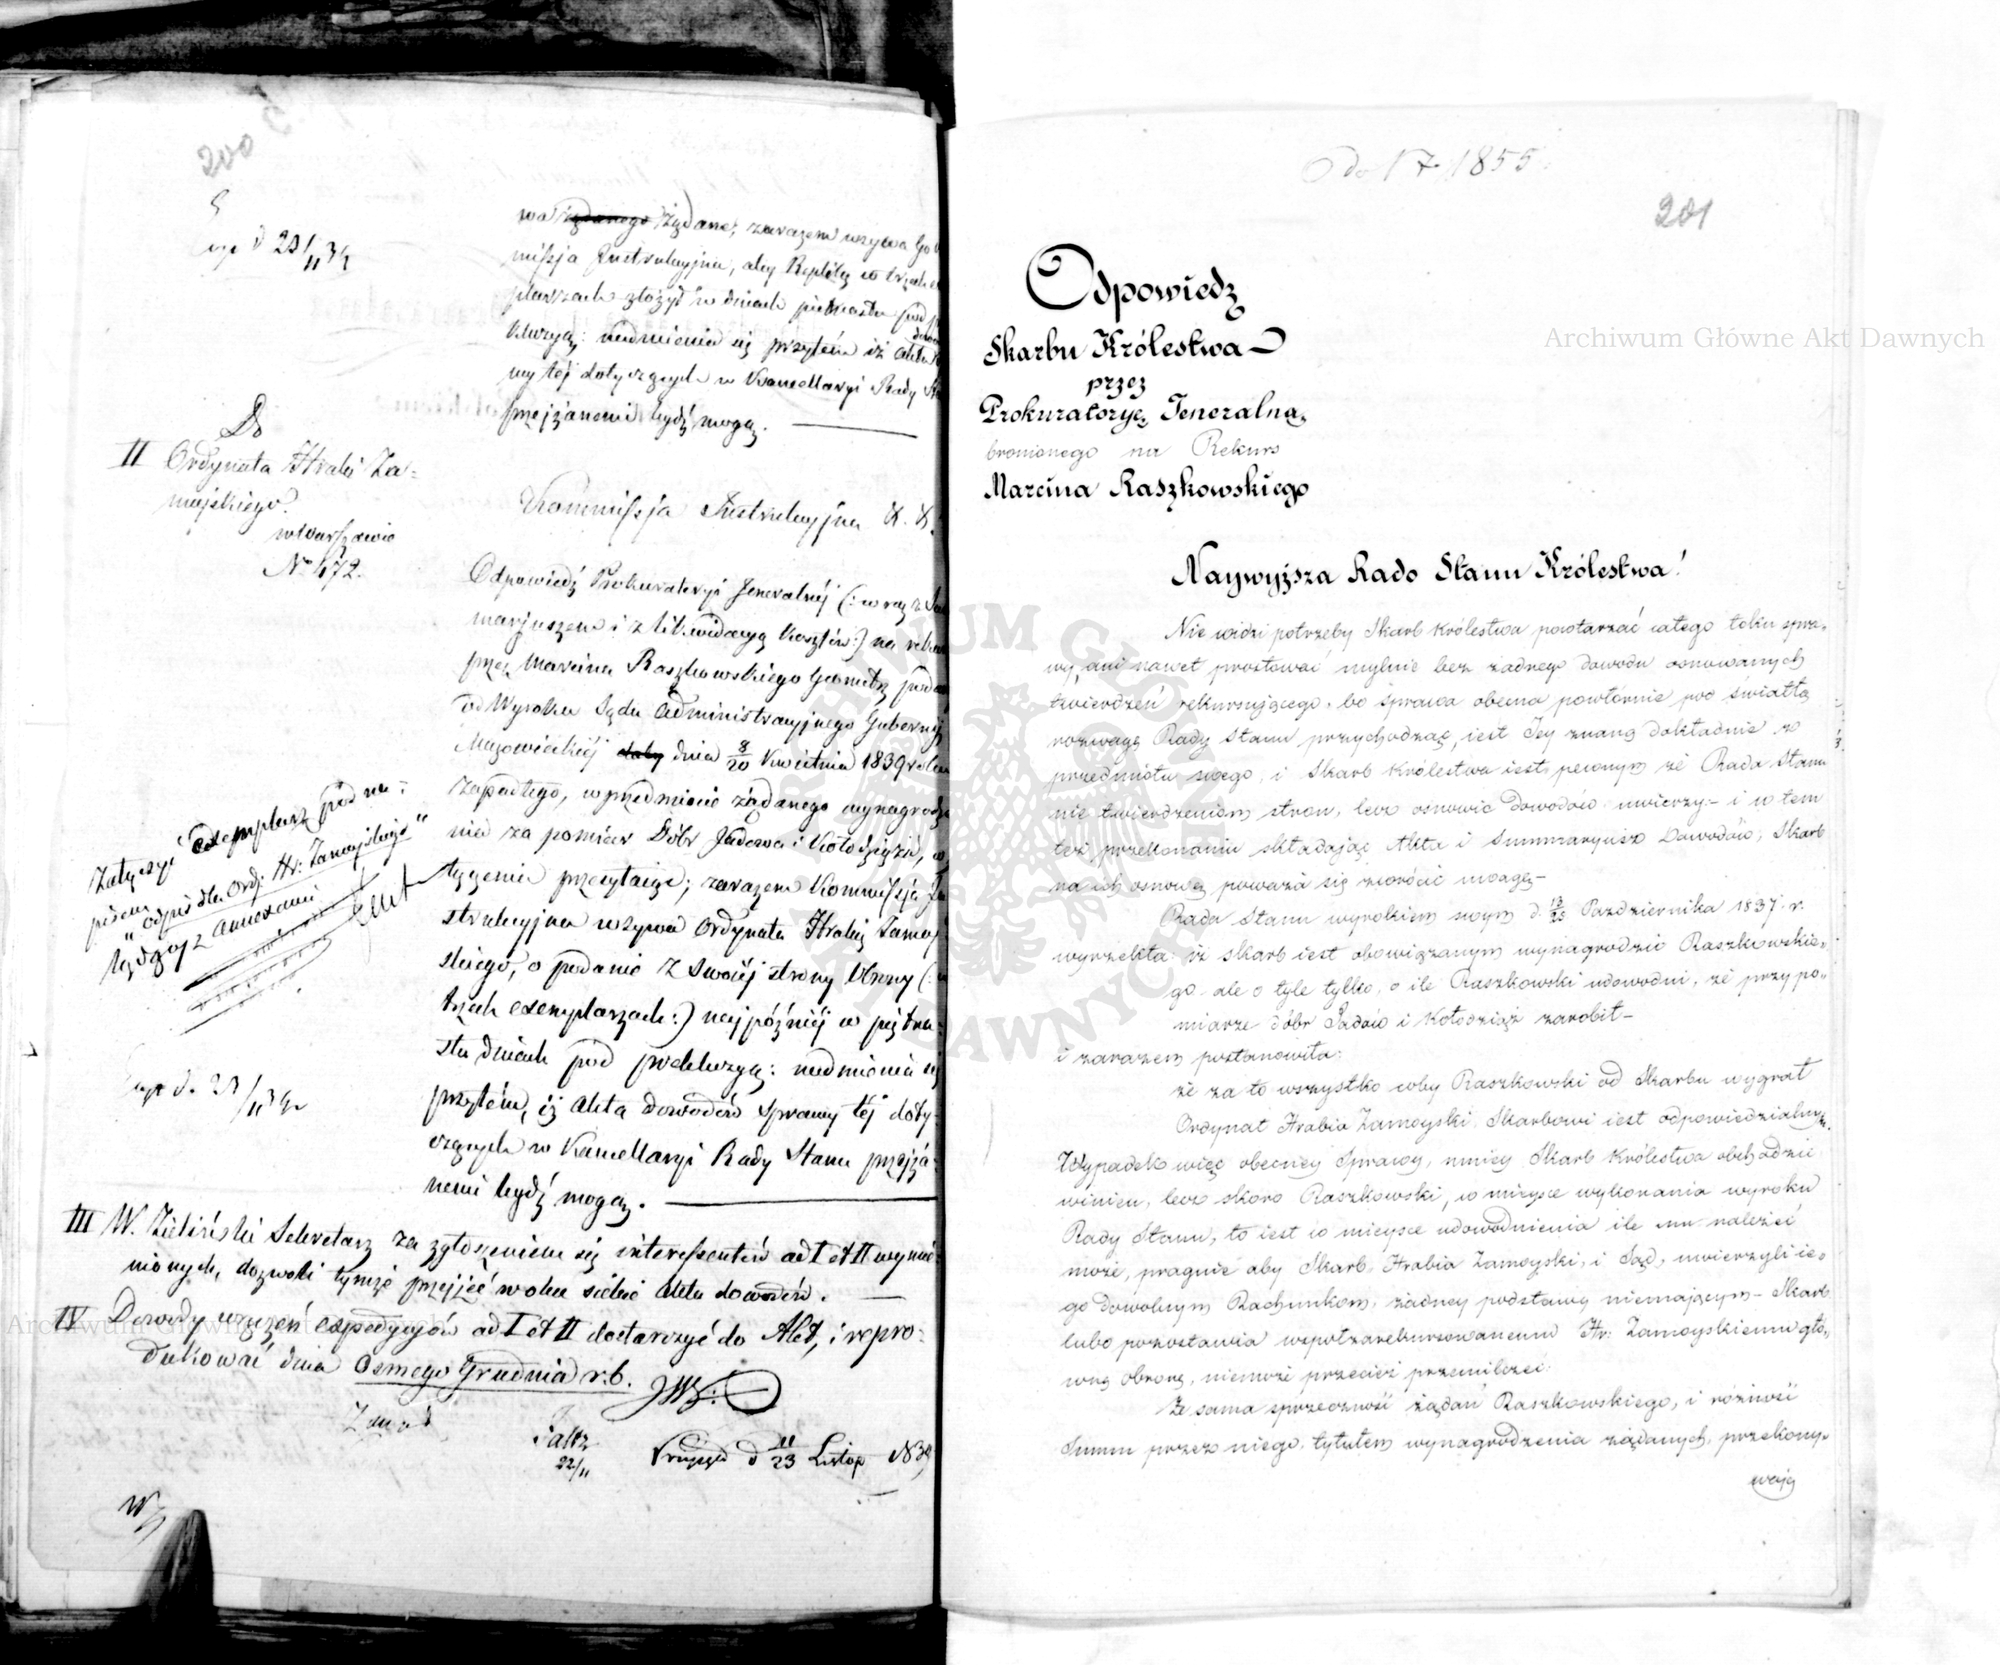 200
wa żądanego żądane, zarazem wzywa Go
missja Instrukcyjna, aby Replikę w trzech
plarzach złożył w dniach piętnastu pod
kluzyą: nadmienia się przytém iż Akta
my téj dotyczących w Kancellaryi Rady
przejzanemi bydź mogą.
Do
II Ordynata Hrabi Za-
mojskiego
w Warszawie
No 472.
Kommissja Instrukcyjna &. &.
Odpowiedź Prokuratoryi Jeneralnéj (: wraz z
marjuszem i z likwidacyą kosztów:) na
przez Marcina Raszkowskiego Geometrę
od Wyroku Sądu Administracyjnego Gubernij
Mazowieckiéj dnia 8/20 Kwietnia 1839
zapadłego, w przedmiocie żądanego wynagrodze
nia za pomiar Dóbr Jadowa i Kołodziąża,
łączenia przesyłając; zarazem Kommissja
strukcyjna wzywa Ordynata Hrabię Zamoj
skiego, o podanie z swoiéj strony Obrony (:
trzech exemplarzach:) najpóźniéj w piętna-
stu dniach pod prekluzyą: nadmienia się
przytém, iż Akta dowodów sprawy téj doty-
czących w Kancellaryi Rady Stanu przejza-
nemi bydź mogą.
Załączyć exemplarz pod na-
pisem
"odpis dla Ord. Hr. Zamojskiego"
łącząc z annexami
III W. Zieliński Sekretarz za zgłoszeniem się interessentów ad I et II wymie-
nionych, dozwoli tymże przejżeć w obec siebie Akta dowodów.
IV Dowody wręczeń expedycyów ad I et II dostarczyć do Akt, i repro-
dukować dnia Osmego Grudnia r.b.
22/11
d 11/23 Listop 1839
1855.
201
Odpowiedz
Skarbu Królestwa
przez
Prokuratoryę Jeneralną
bronionego na Rekurs
Marcina Raszkowskiego
Naywyższa Rado Stanu Królestwa!
Nie widzi potrzeby Skarb Królestwa powtarzać całego toku spra-
wy, ani nawet prostować mylnie bez żadnego dowodu osnowanych
twierdzeń rekursującego, bo sprawa obecna powtórnie pod światłą
rozwagę Rady Stanu przychodząc, iest Jey znaną dokładnie w
przedmiotu swego, i Skarb Królestwa iest pewnym że Rada Stanu
nie twierdzeniom stron, lecz osnowie dowodów uwierzy - i w tem
też przekonaniu składając Akta i Summaryusz Dowodów, Skarb
na ich osnowę powaza się zwrócić uwagę -
Rada Stanu wyrokiem swym d. 13/25 Pazdziernika 1837. r.
wyrzekła: iż skarb iest obowiązanym wynagrodzić Raszkowskie-
go ale o tyle tylko, o ile Raszkowski udowodni, że przy po-
miarze dóbr Jadów i Kołodziąż zarobił -
i zarazem postanowiła:
że za to wszystko coby Raszkowski od Skarbu wygrał
Ordynat Hrabia Zamoyski Skarbowi iest odpowiedzialnym.
Wypadek więc obecney Sprawy, mniey Skarb Królestwa obchodzić
winien, lecz skoro Raszkowski, w mieysce wykonania wyroku
Rady Stanu, to iest w mieysce udowodnienia ile mu należeć
może, pragnie aby Skarb, Hrabia Zamoyski, i Sąd, uwierzyli ie-
go dowolnym Rachunkom, żadney podstawy niemającym - Skarb
lubo pozostawia współzarekursowanemu Hr. Zamoyskiemu głó-
wną obronę, niemoże przecież przemilczeć:
Że sama sprzeczność żądań Raszkowskiego, i różność
Summ przez niego, tytułem wynagrodzenia żądanych, przekony-
wają
Archiwum Główne Akt Dawnych
Archiwum Główne Akt Dawnych
ARCHIWUM GŁÓWNE AKT DAWNYCH